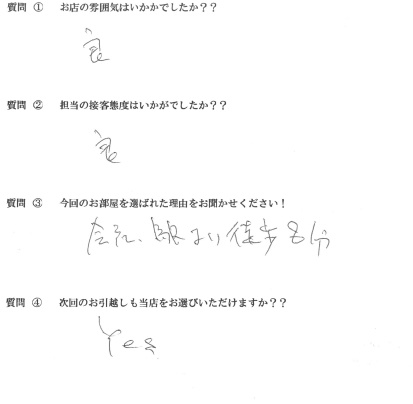 質問 ① お店の雰囲気はいかかでしたか??
良
質問 ② 担当の接客態度はいかがでしたか??
良
質問 ③ 今回のお部屋を選ばれた理由をお聞かせください!
駅より徒歩8分
質問 ④ 次回のお引越しも当店をお選びいただけますか??
Yes